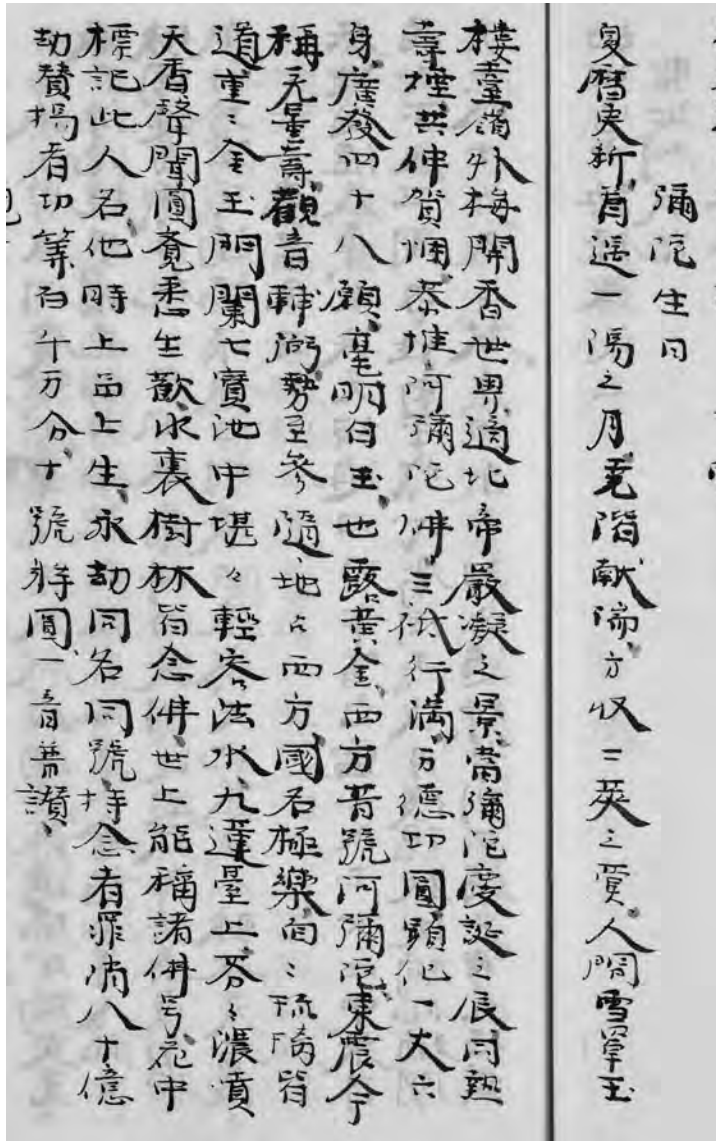 彌陁生日
夏曆更新葭遇一陽之月尭階献瑞方收二荚之賞人間雪罩玉
樓臺嶺外梅開香世界適北帝嚴凝之景當彌陁慶誕之辰同爇
壽檀共伸賀悃恭惟阿彌陁佛三祇行滿万德功圓顕化一大六
身廣發四十八願毫明白玉也露黄金西方昔號阿彌陁東震今
稱无量壽觀音輔弼勢至參随地占西方國名極樂面〻琉璃皆
道重〻金玉門闌七寶池中堪〻輕容法水九蓮臺上苾〻濃噴
天香聲聞圓覺悉生歡水裏樹林皆念佛世上能稱諸佛号花中
標記此人名他時上品上生永劫同名同號持念者罪消八十億
劫賛揚者功等百千万分十號將圓一音普讃